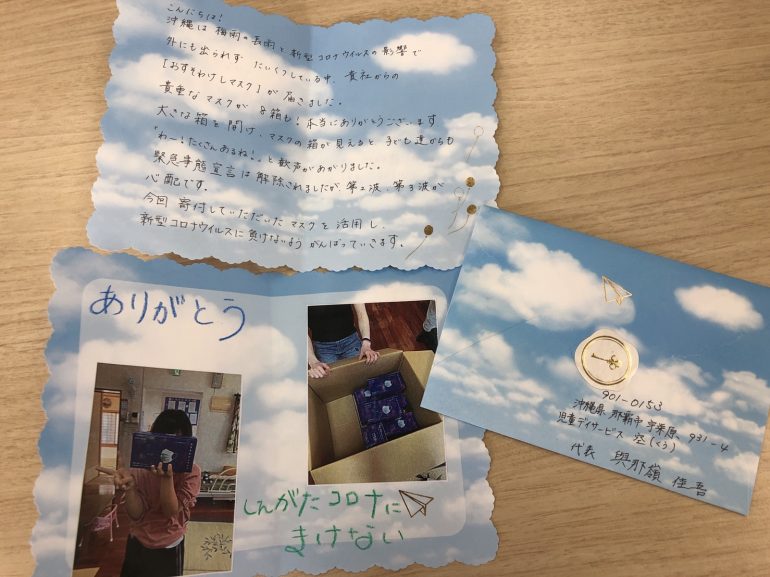 こんにちは!
沖縄は梅雨の長雨と新型コロナウイルスの影響で
外にも出られず たいくつしている中、貴社からの
【おすそわけしマスク】が 届きました。
貴重なマスクが 8箱も!本当にありがとうございます
大きな箱を開け、マスクの箱が見えると 子ども達からも
"わ〜!たくさんあるね!"と歓声があがりました。
緊急事態宣言は解除されましたが、第2波、第3波が
心配です。
今回 寄付していただいたマスクを活用し、
新型コロナウイルスに負けないよう がんばっていきます。
ありがとう
しんがたコロナに
まけない
901-0153
沖縄県 那覇市 宇栄原 931-4
児童デイサービス 空(くう)
代表 與那嶺 佳吾